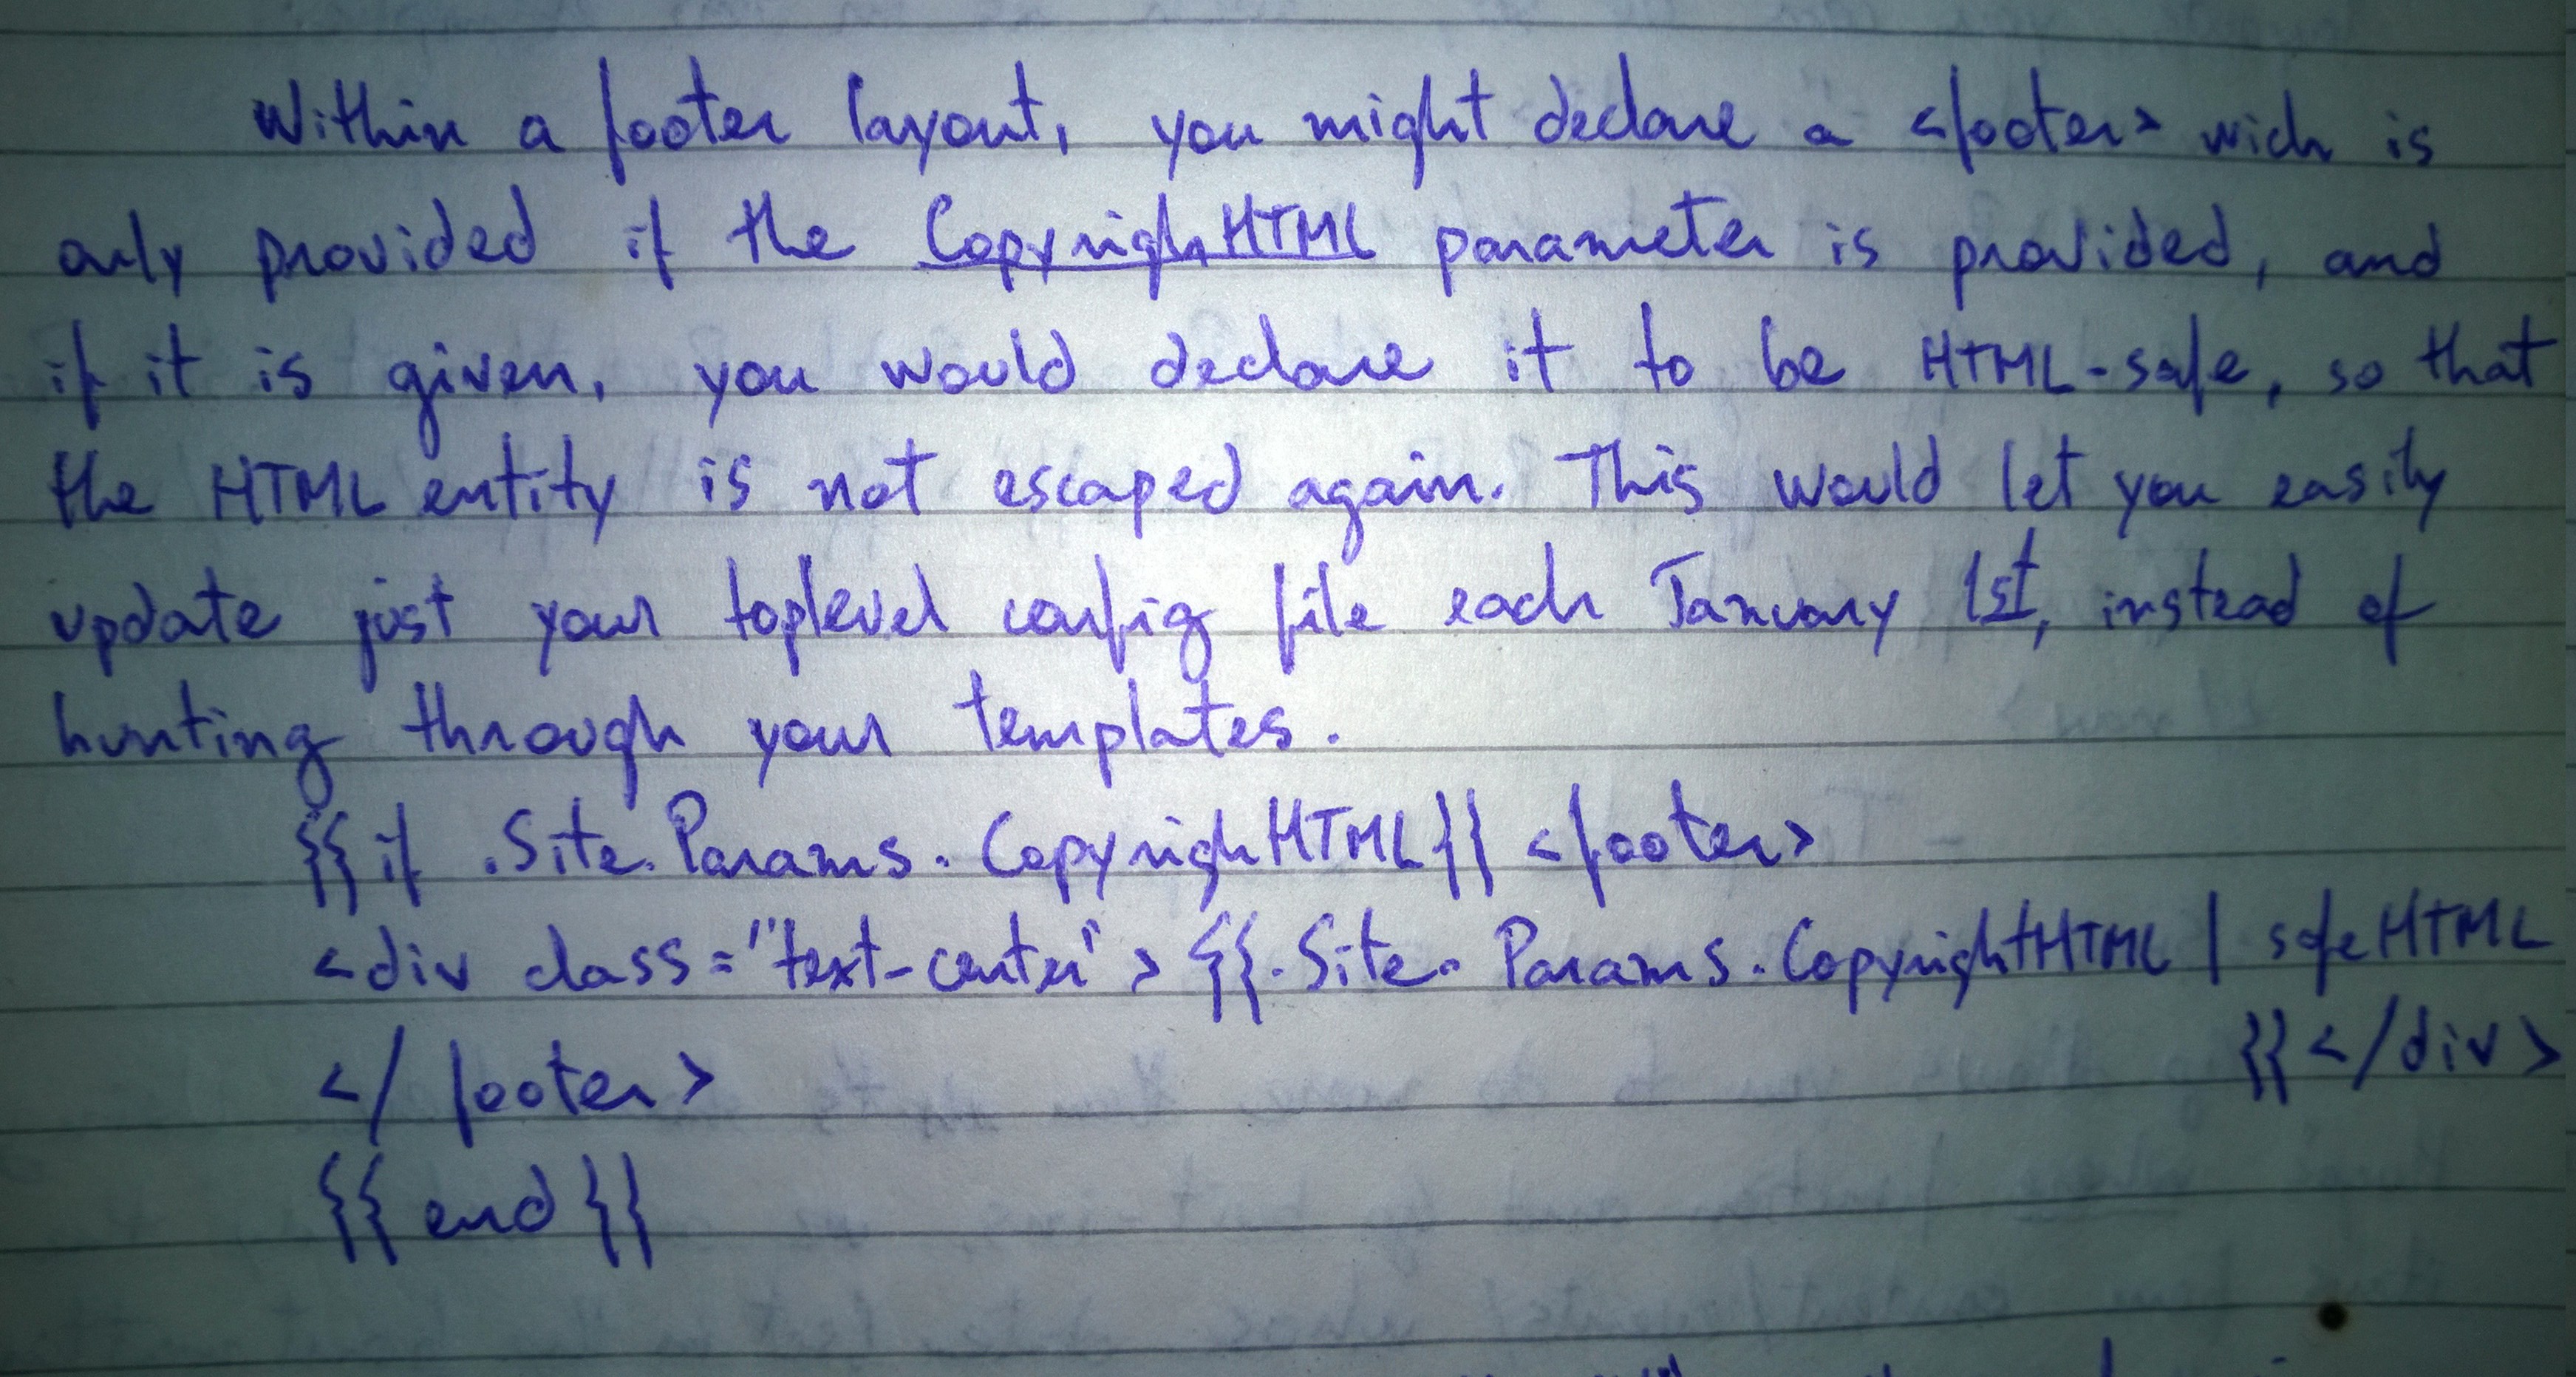 Within a footer layout, you might declare a <footer> wich is
only provided if the CopyrighHTML parameter is provided, and
if it is given, you would declare it to be HTML-safe, so that
the HTML entity is not escaped again. This would let you easily
update just your toplevel config file each January 1st, instead of
hunting through your templates.
{{if .Site.Params.CopyrighHTML}} <footer>
<div class="text-center"> {{.Site.Params.CopyrightHTML | safeHTML
}}</div>
</footer>
{{end}}